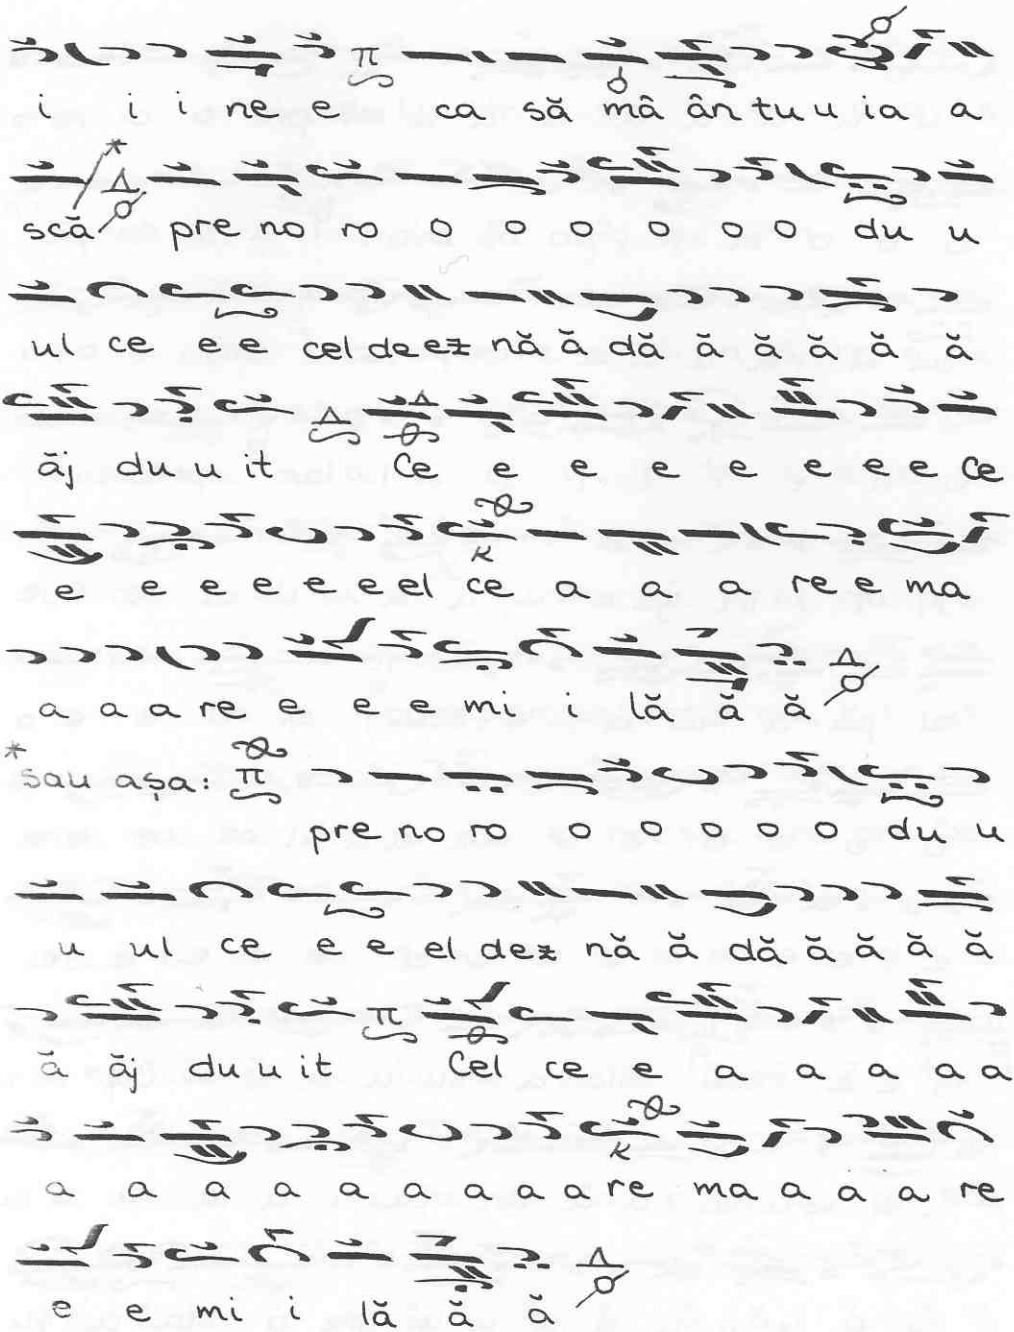 i i i ne e ca să mâ ân tu u ia a
scă pre no ro o o o o o o du u
ul ce e e cel de ez nă ă dă ă ă ă ă ă
ăj du u it Ce e e e e e e e ce
e e e e e e el ce a a a re e ma
a a a re e e e mi i lă ă ă
* sau așa: π
pre no ro o o o o o du u
u ul ce e e el dez nă ă dă ă ă ă ă
ă ăj du u it Cel ce e a a a a a
a a a a a a a a a re ma a a a re
e e mi i lă ă ă